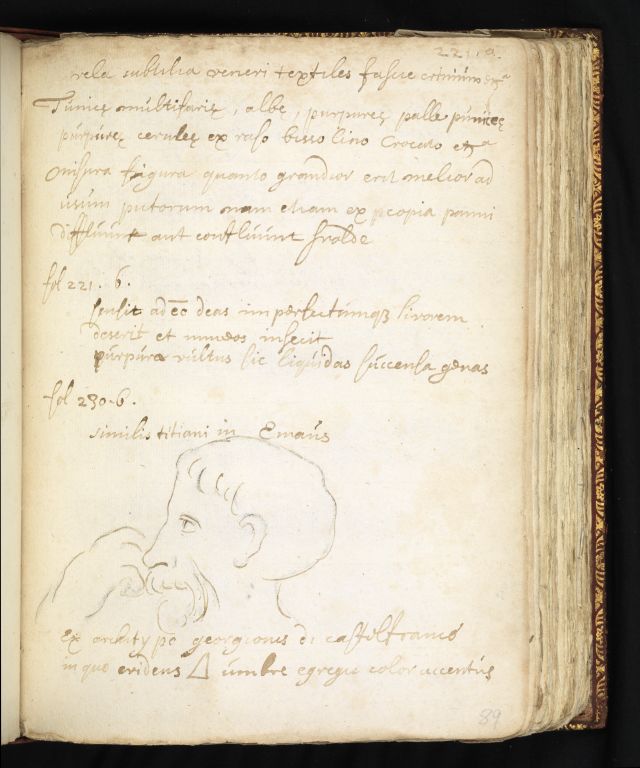 221.a.
vela subtilia veneri textiles fascie
Tunicę multifarię, albę, purpureę palle punicęę
purpureę ceruleę ex raso bisso lino Crocato etca
misura figura quanto grandior erit melior ad
usum pictorum nam etiam ex propia panni
diffluunt aut confluunt
fol 221. b.
sensit adeo deas imperfectumq3 livorem
deserit et niveos infecit
purpura vultus sic liquidas succensa genas
fol 230.b.
similis titiani in Emaus
ex archetypo georgionis di castelfranco
in quo evidens umbre egregii color accentus
89